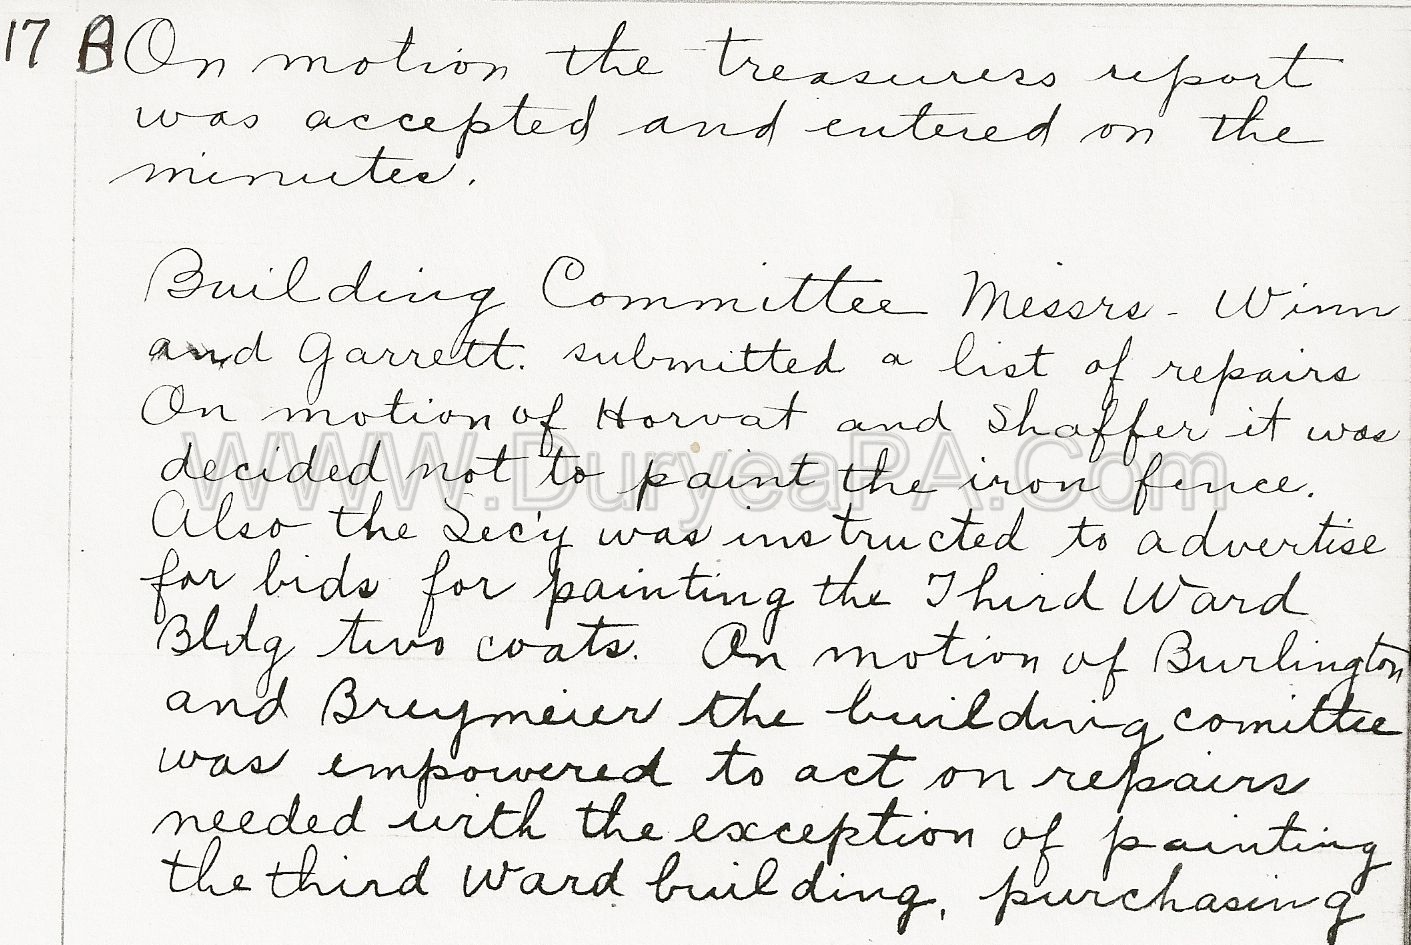 17 B On motion the treasurers report
was accepted and entered on the
minutes.
Building Committee Messrs - Winn
and Garrett. submitted a list of repairs
On motion of Horvat and Shaffer it was
decided not to paint the iron fence.
WWW.DuryeaPA.Com
Also the Sec'y was instructed to advertise
for bids for painting the Third Ward
Bldg two coats. On motion of Burlington
and Breymeier the building comittee
was empowered to act on repairs
needed with the exception of painting
the third Ward building, purchasing